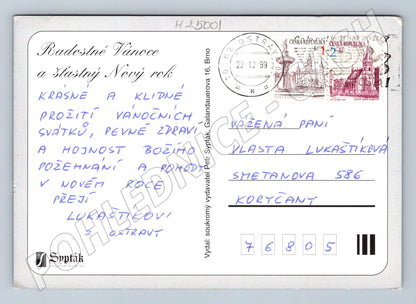 H25001
Radostné Vánoce
a šťastný Nový rok
KRÁSNÉ A KLIDNÉ
PROŽITÍ VÁNOČNÍCH
SVÁTKŮ, PEVNÉ ZDRAVÍ
A HOJNOST BOŽÍHO
POŽEHNÁNÍ A POHODY
V NOVÉM ROCE
PŘEJÍ
LUKAŠTÍKOVI
Z OSTRAVY
Sypták
Vydal: soukromý vydavatel Petr Sypták, Galandauerova 16, Brno
OSTRAVA
22.12.99
ČESKÁ REPUBLIKA
ČESKÁ REPUBLIKA
VÁŽENÁ PANÍ
VLASTA LUKAŠTÍKOVÁ
SMETANOVA 586
KORYČANY
76805
POHLEDNICE - CASH